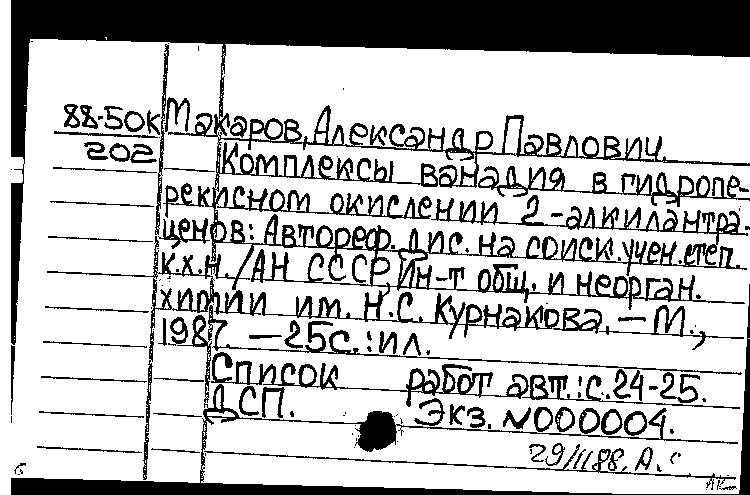 88-50к Макаров, Александр Павлович.
202 Комплексы ванадия в гидропе-
рекисном окислении 2-алкилантра-
ценов: Автореф. дис. на соиск. учен. степ.
к.х.н. / АН СССР, Ин-т общ. и неорган.
химии им. Н.С. Курнакова. — М.,
1987. — 25с.: ил.
Список работ авт.: с. 24-25.
ДСП. Экз. N000004.
29/II 88. А.